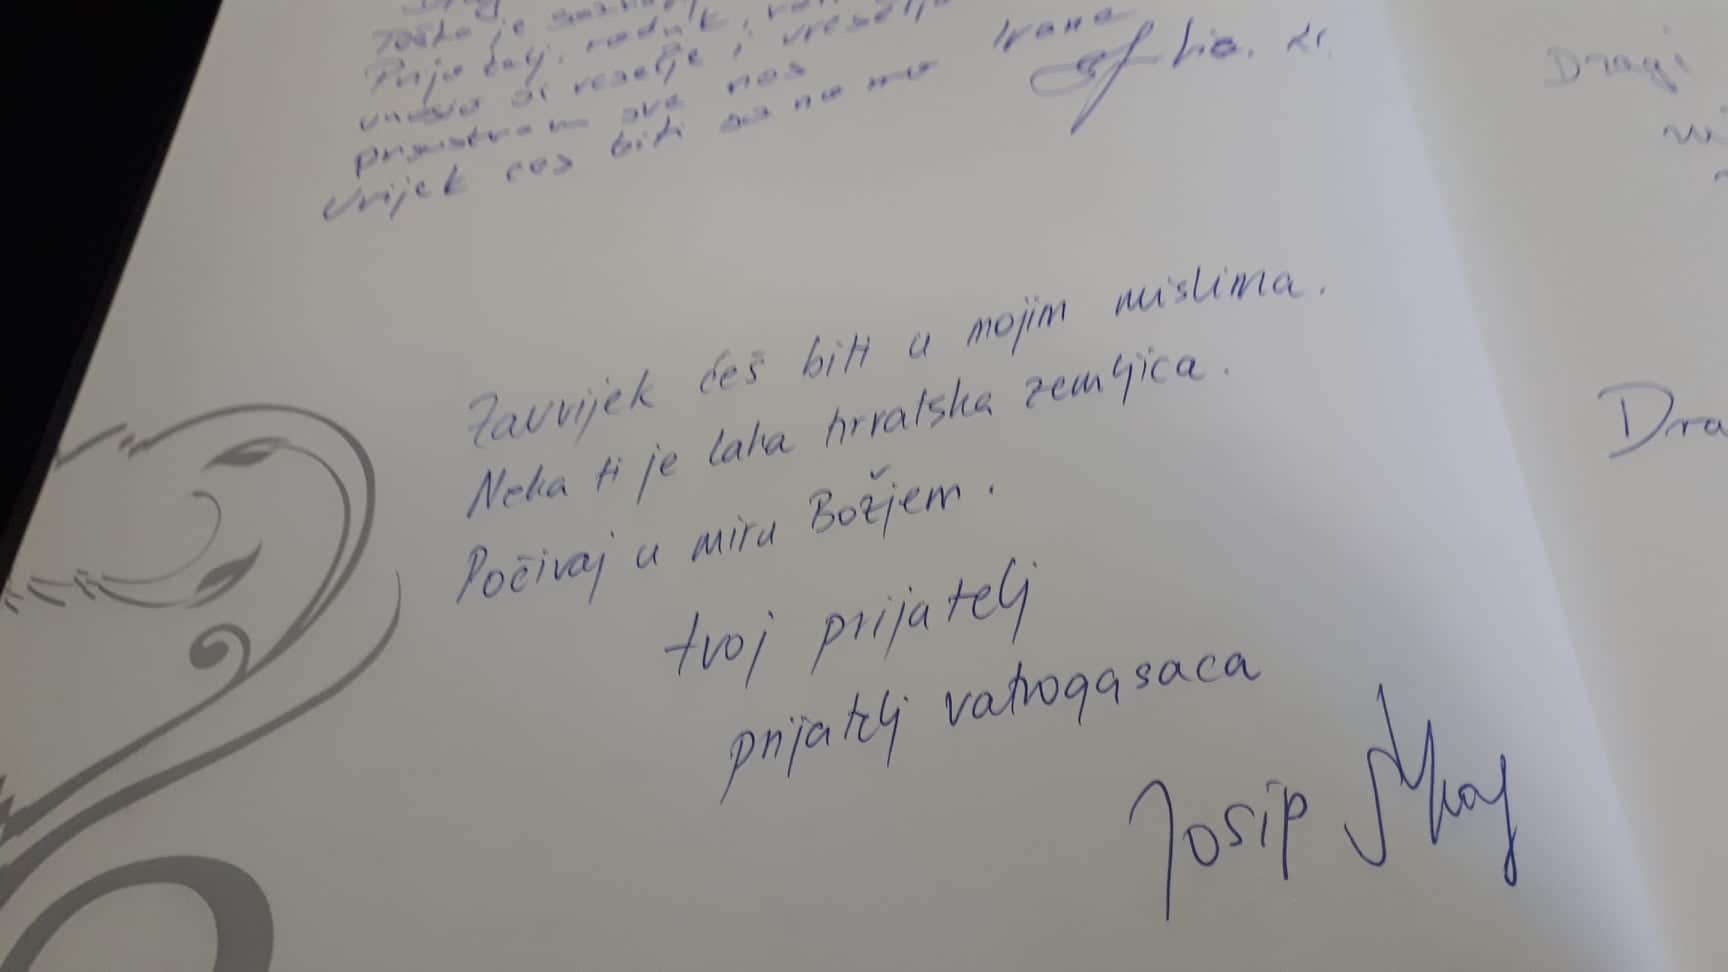 unosio si veselje i
prisustvom sve nas
Uvijek ćeš biti sa na ma
Ivana
Dragi
Zauvijek ćeš biti u mojim mislima.
Neka ti je laka hrvatska zemljica.
Počivaj u miru Božjem.
tvoj prijatelj
prijatelj vatrogasaca
Josip
Dra